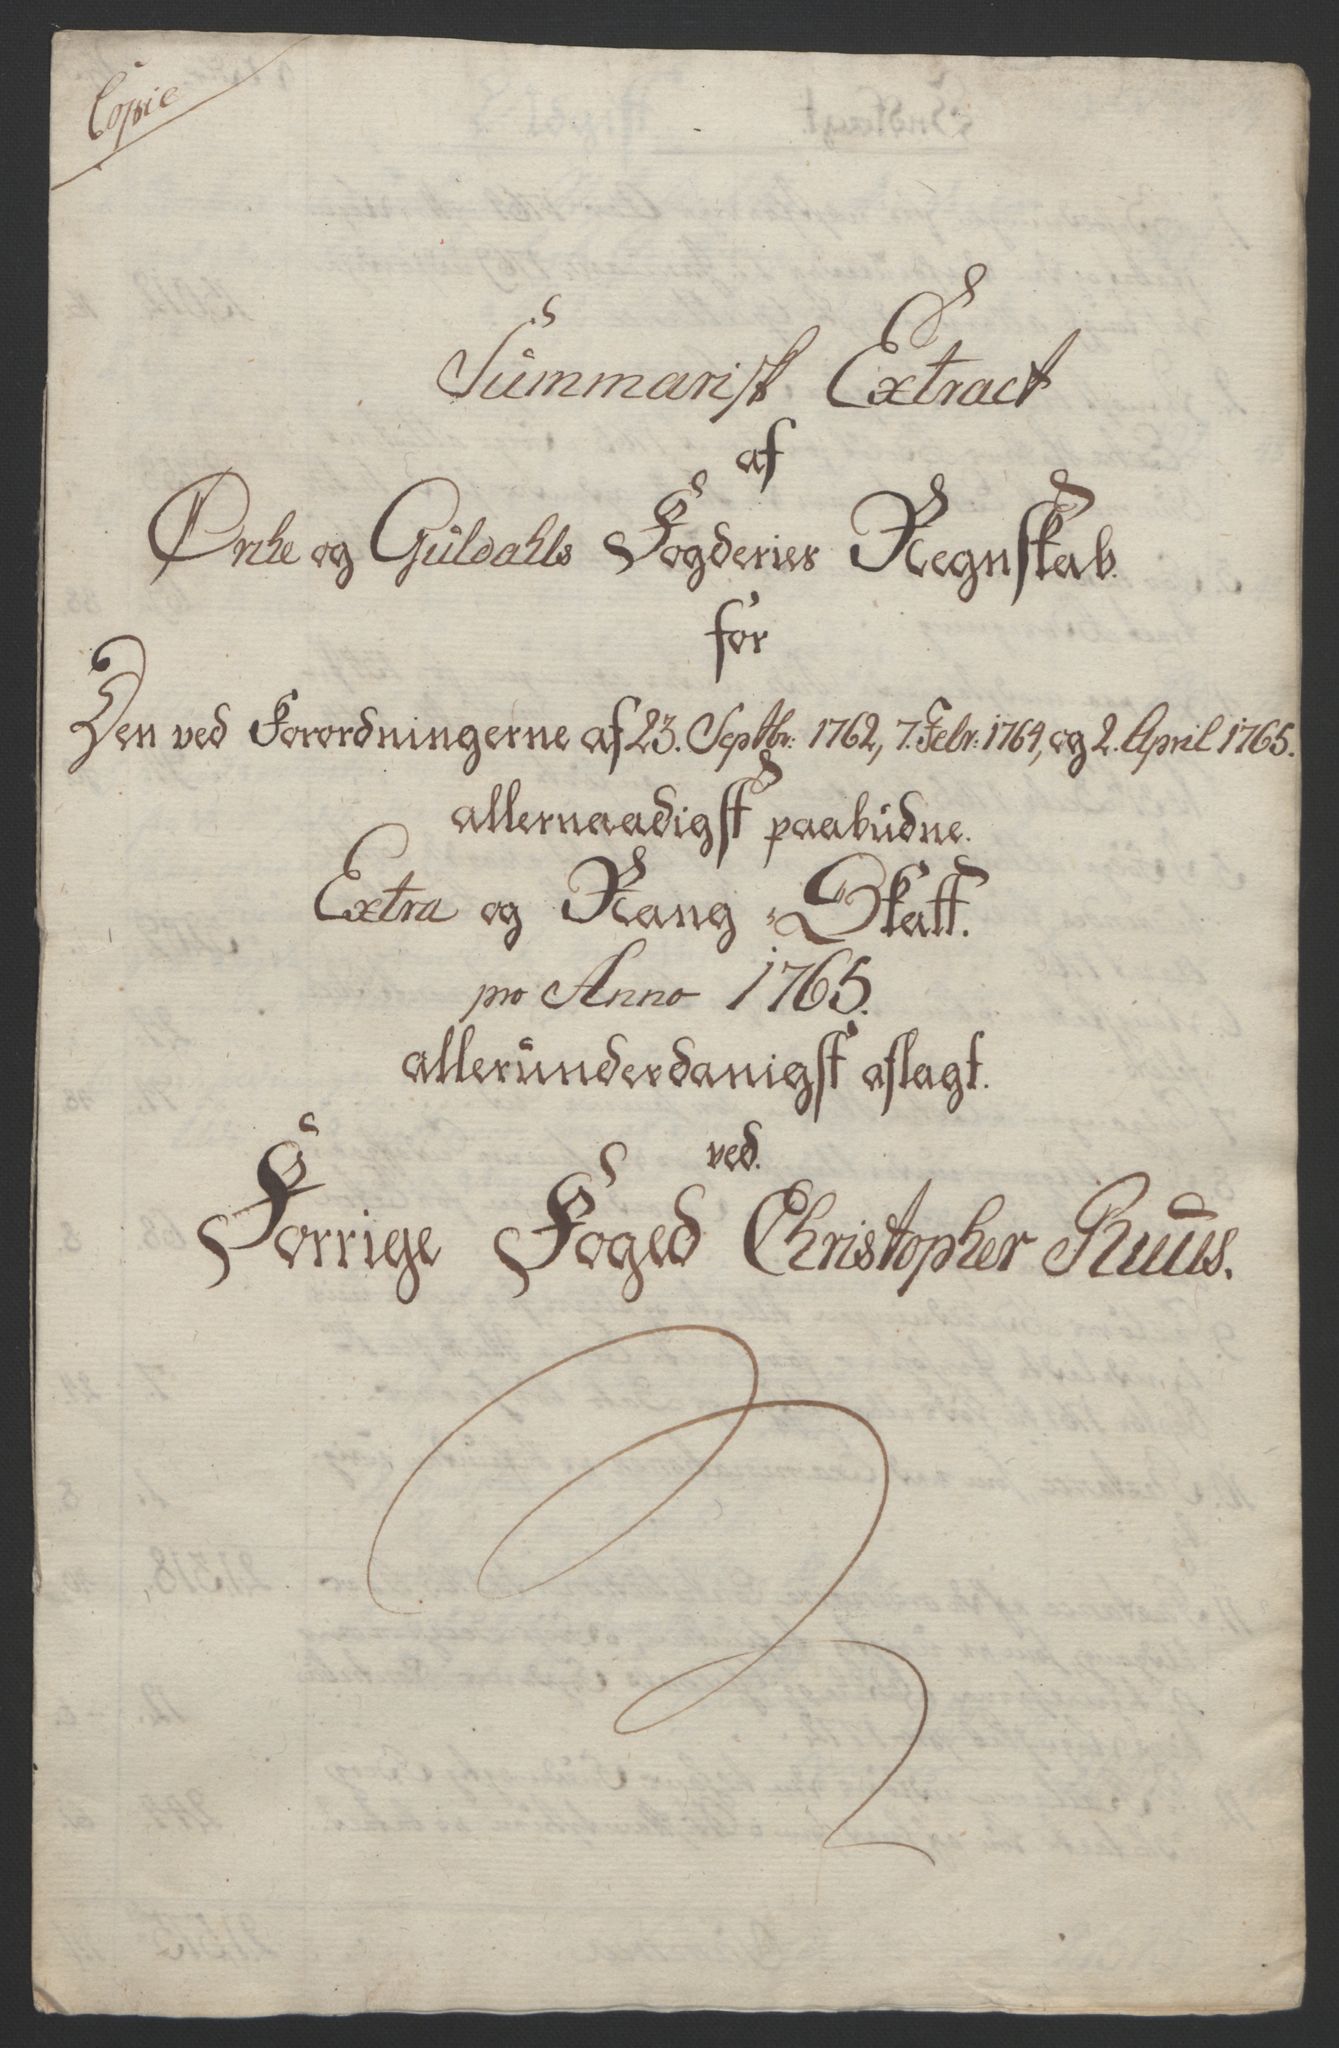 Copie
Summarisk Extract
af
Orke og Guldahls Fogderies Regnskab
for
Den ved Forordningerne af 23. Septbr: 1762, 7. Febr: 1764, og 2. April 1765.
allernaadigst paabudne.
Extra og Rang-Skatt.
pro Anno 1765.
allerunderdanigst aflagt.
ved.
Forrige Foged Christopher Ruus.